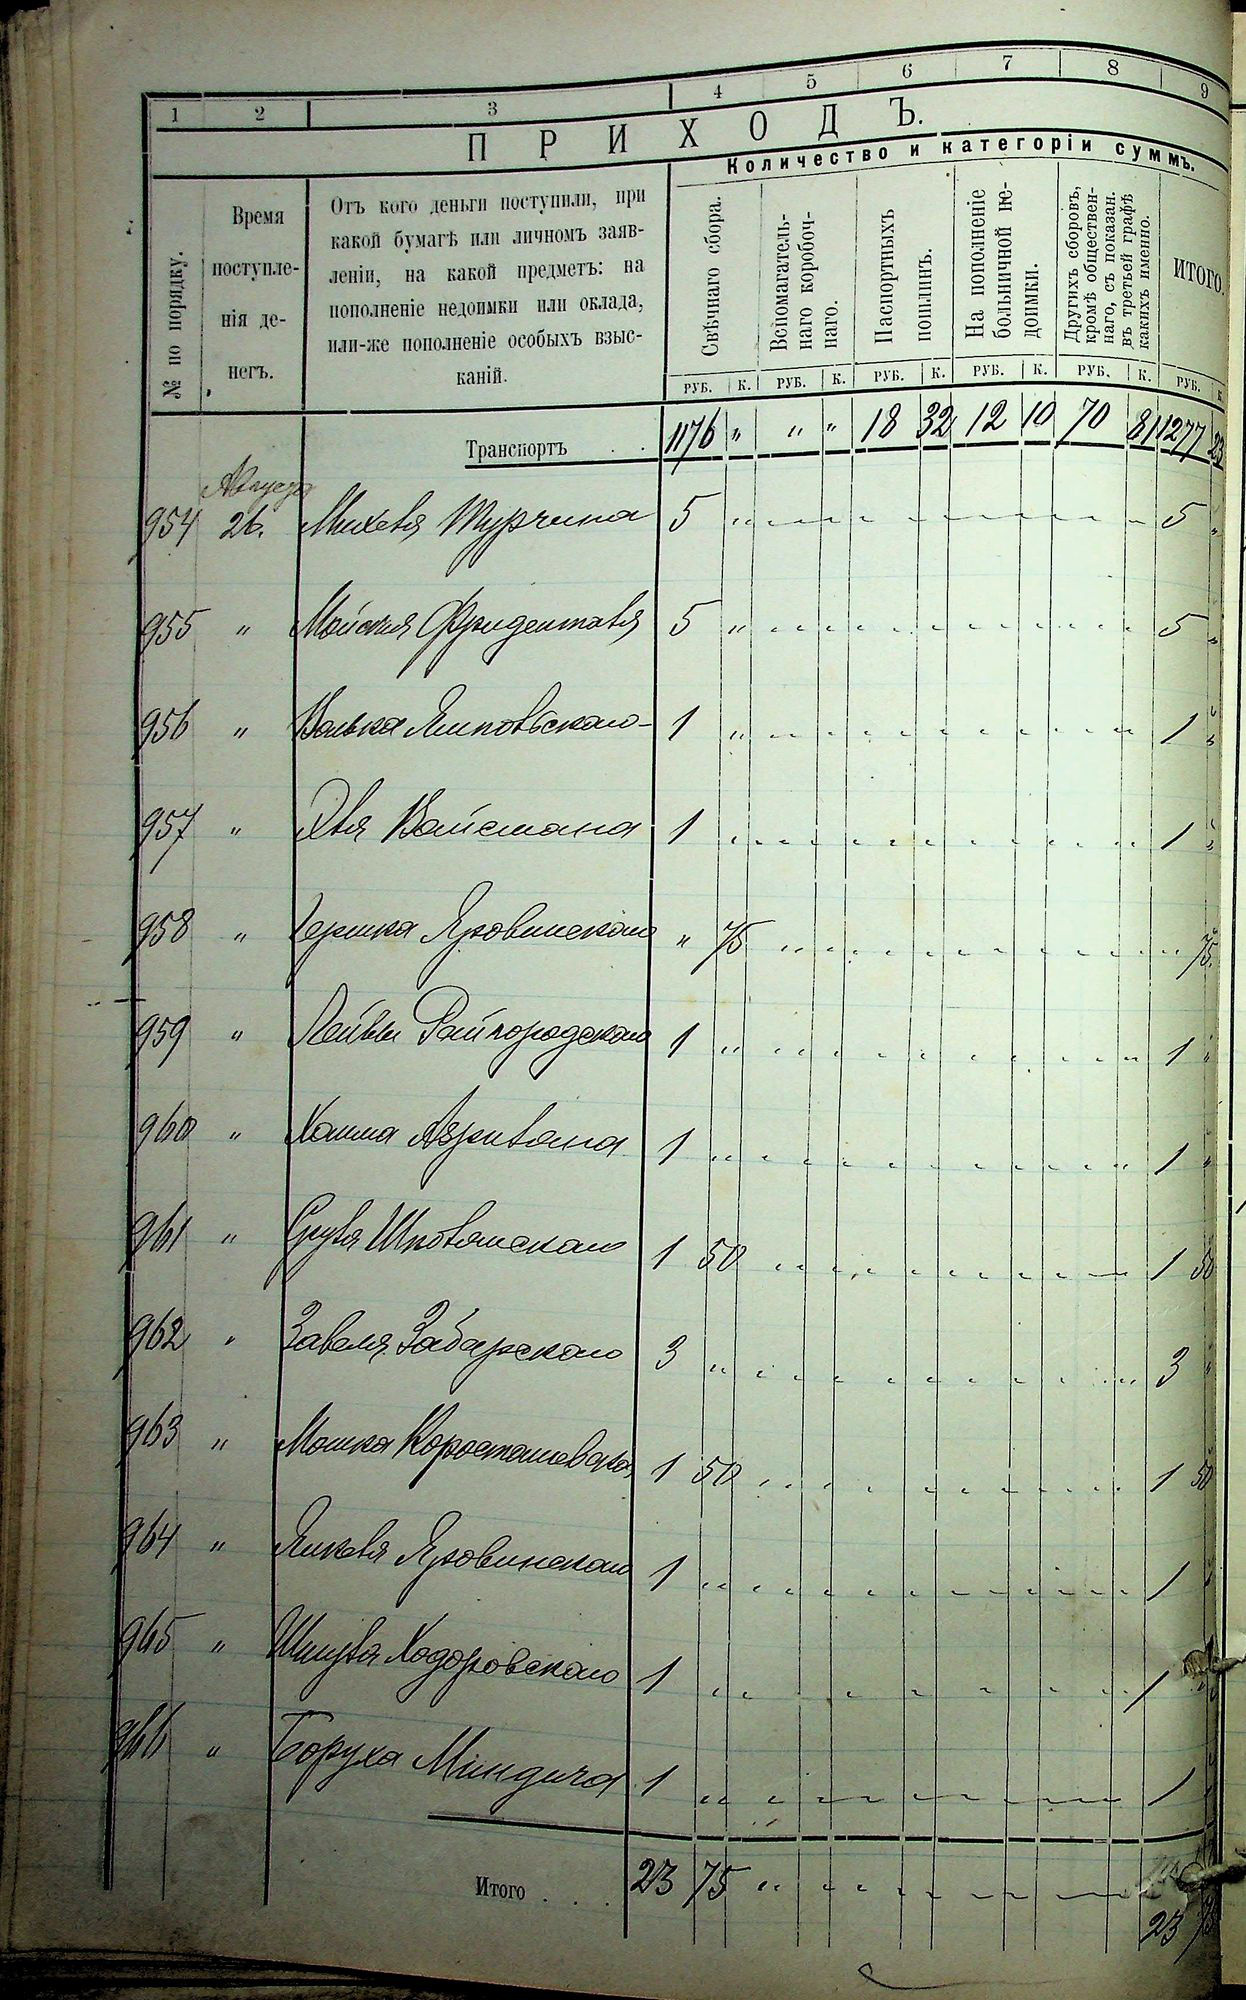 1 2 3 4 5 6 7 8 9
ПРИХОДЪ.
Количество и категоріи суммъ.
№ по порядку.
Время
поступле-
нія де-
негъ.
Отъ кого деньги поступили, при
какой бумагѣ или личномъ заяв-
леніи, на какой предметъ: на
пополненіе недоимки или оклада,
или-же пополненіе особыхъ взыс-
каній.
Свѣчнаго сбора.
Вспомагатель-
наго коробоч-
наго.
Паспортныхъ
пошлинъ.
На пополненіе
больничной не-
доимки.
Другихъ сборовъ,
кромѣ обществен-
наго, съ показан.
въ третьей графѣ
какихъ именно.
ИТОГО.
РУБ. К. РУБ. К. РУБ. К. РУБ. К. РУБ. К. РУБ. К
Транспортъ . . 1176 " " " 18 32 12 10 70 81 1277 23
Августа
954 26. Михеля Турчина 5 " 5 "
955 " Мойсея 5 " 5 "
956 " Волька Липовскаго 1 " 1 "
957 " Вайсмана 1 1 "
958 " Гершка Яровинскаго " 75 75
959 " Лейбы Райгородскаго 1 " 1 "
960 " Хаима 1 " 1 "
961 " Сруля 1 50 1 50
962 " Завеля Забарскаго 3 " 3 "
963 " Мошка 1 50 1 50
964 " Янкеля Яровинскаго 1 " 1 "
965 " Шмуля Ходоровскаго 1 " 1 "
966 " Боруха Миндича 1 " 1 "
Итого . . . 23 75 " 23 75